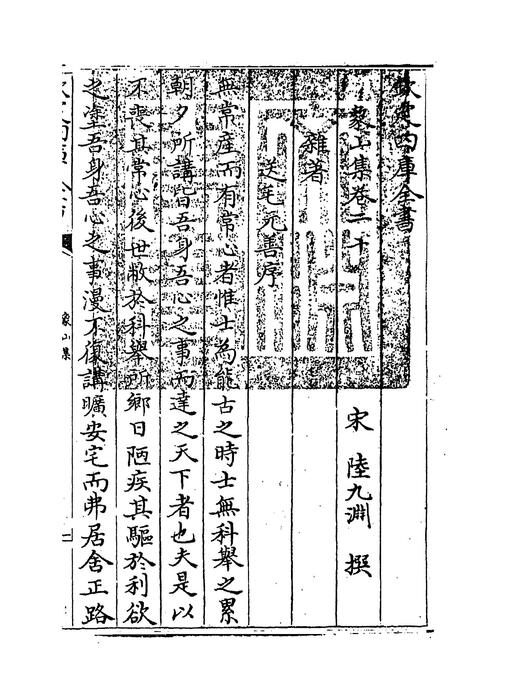 欽定四庫全書
象山集卷二十
宋 陸九淵 撰
雜著
送毛元善序
無常産而有常心者惟士為能古之時士無科舉之累
朝夕所講皆吾身吾心之事而達之天下者也夫是以
不喪其常心後世敝於科舉所鄉日陋疾其驅於利欲
之塗吾身吾心之事漫不復講曠安宅而弗居舍正路
象山集